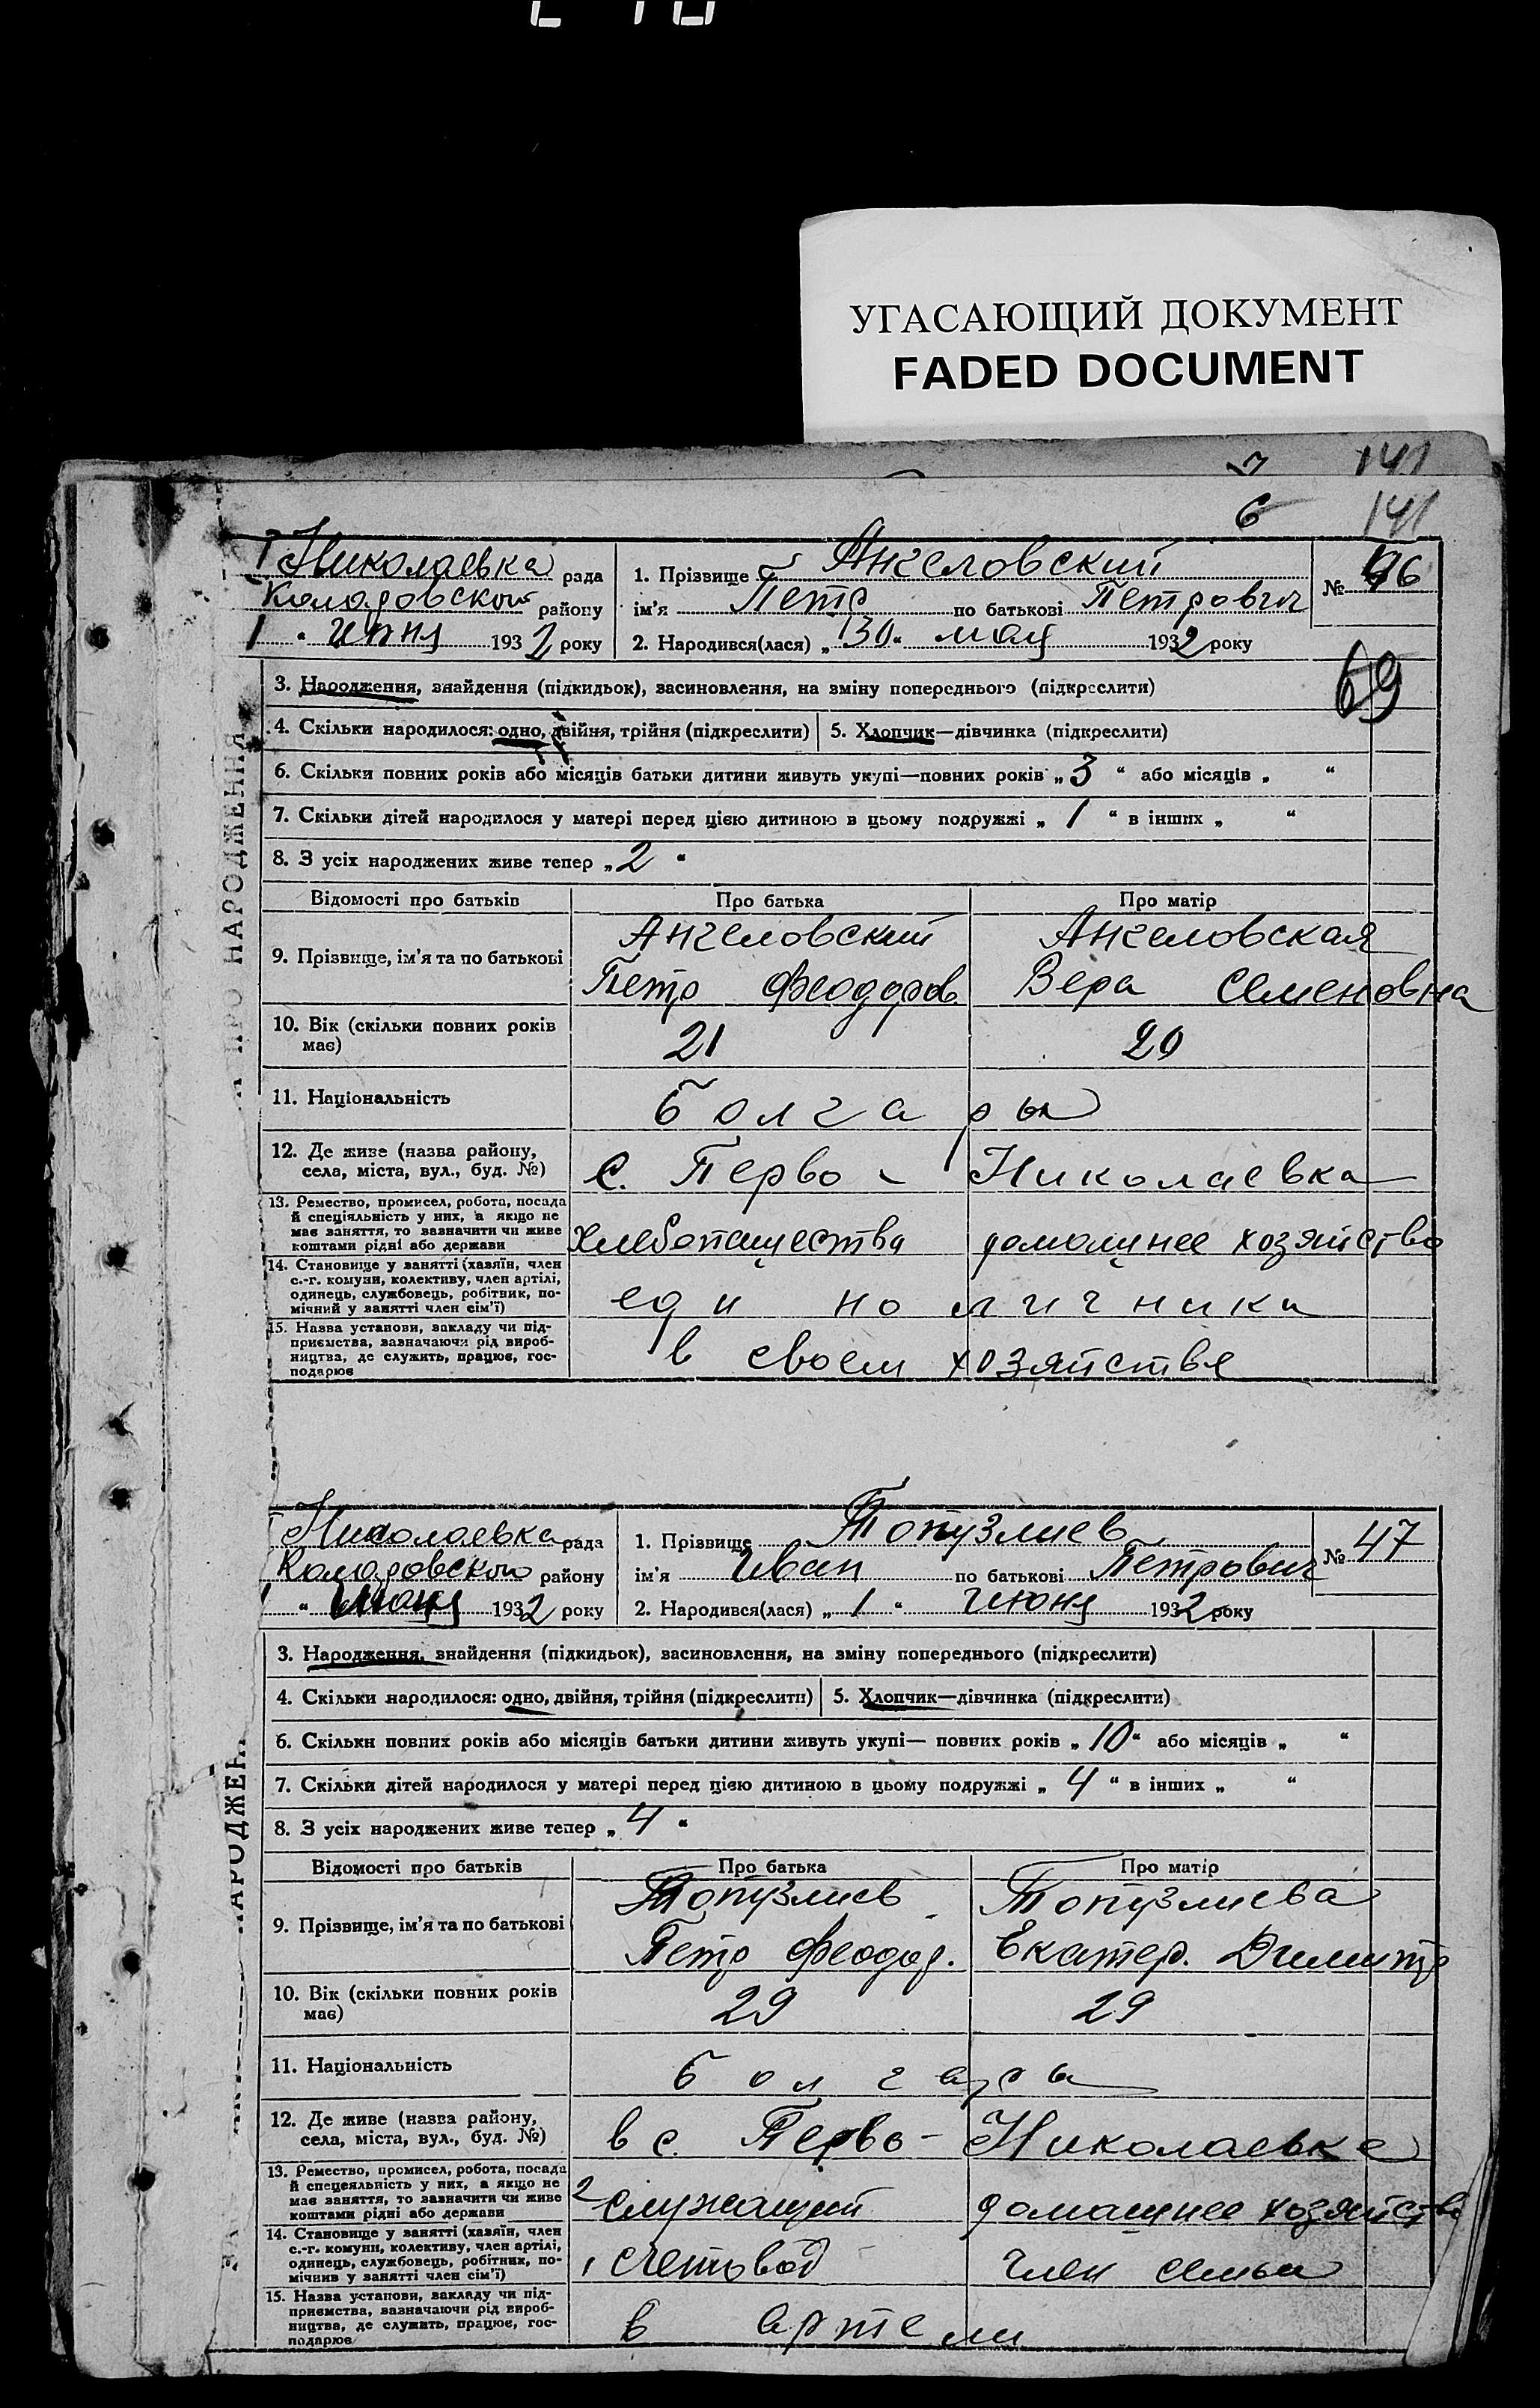 УГАСАЮЩИЙ ДОКУМЕНТ
FADED DOCUMENT
141
6 141
Николаевка рада 1. Прізвище Ангеловский № 46
району ім'я Петр по батькові Петрович
1 " июня 1932 року 2. Народився(лася) „ 30 " мая 1932 року
69
3. Народження, знайдення (підкидьок), засиновлення, на зміну попереднього (підкреслити)
4. Скільки народилося: одно, двійня, трійня (підкреслити) 5. Хлопчик—дівчинка (підкреслити)
6. Скільки повних років або місяців батьки дитини живуть укупі—повних років „ 3 " або місяців „ "
7. Скільки дітей народилося у матері перед цією дитиною в цьому подружжі „ 1 " в інших „ "
8. З усіх народжених живе тепер „ 2 "
Відомості про батьків Про батька Про матір
Ангеловский Ангеловская
9. Прізвище, ім'я та по батькові
Петр Феодоров Вера Семеновна
10. Вік (скільки повних років
має) 21 20
11. Національність болгары
12. Де живе (назва району,
села, міста, вул., буд. №) с. Перво - Николаевка
13. Ремество, промисел, робота, посада
й спеціяльність у них, а якщо не
має заняття, то зазначити чи живе
коштами рідні або держави хлебопашества домашнее хозяйство
14. Становище у занятті (хазяїн, член
с.-г. комуни, колективу, член артілі,
одинець, службовець, робітник, по-
мічний у занятті член сім'ї) единоличники
15. Назва установи, закладу чи під-
приємства, зазначаючи рід вироб-
ництва, де служить, працює, гос-
подарює в своем хозяйстве
Николаевка рада 1. Прізвище Топузлиев № 47
району ім'я Иван по батькові Петрович
1 " июня 1932 року 2. Народився(лася) „ 1 " июня 1932 року
3. Народження, знайдення (підкидьок), засиновлення, на зміну попереднього (підкреслити)
4. Скільки народилося: одно, двійня, трійня (підкреслити) 5. Хлопчик—дівчинка (підкреслити)
6. Скільки повних років або місяців батьки дитини живуть укупі— повних років „ 10 " або місяців „ "
7. Скільки дітей народилося у матері перед цією дитиною в цьому подружжі „ 4 " в інших „ "
8. З усіх народжених живе тепер „ 4 "
Відомості про батьків Про батька Про матір
Топузлиев Топузлиева
9. Прізвище, ім'я та по батькові
Петр Феодор. Екатер. Димитр
10. Вік (скільки повних років
має) 29 29
11. Національність болгары
12. Де живе (назва району,
села, міста, вул., буд. №) в с. Перво - Николаевке
13. Ремество, промисел, робота, посада
й спецеяльність у них, а якщо не
має заняття, то зазначити чи живе
коштами рідні або держави 2 служащий домашнее хозяйство
14. Становище у занятті (хазяїн, член
с.-г. комуни, колективу, член артілі,
одинець, службовець, робітник, по-
мічнив у занятті член сім'ї) 1 счетовод член семьи
15. Назва установи, закладу чи під-
приємства, зазначаючи рід вироб-
ництва, де служить, працює, гос-
подарює в артели